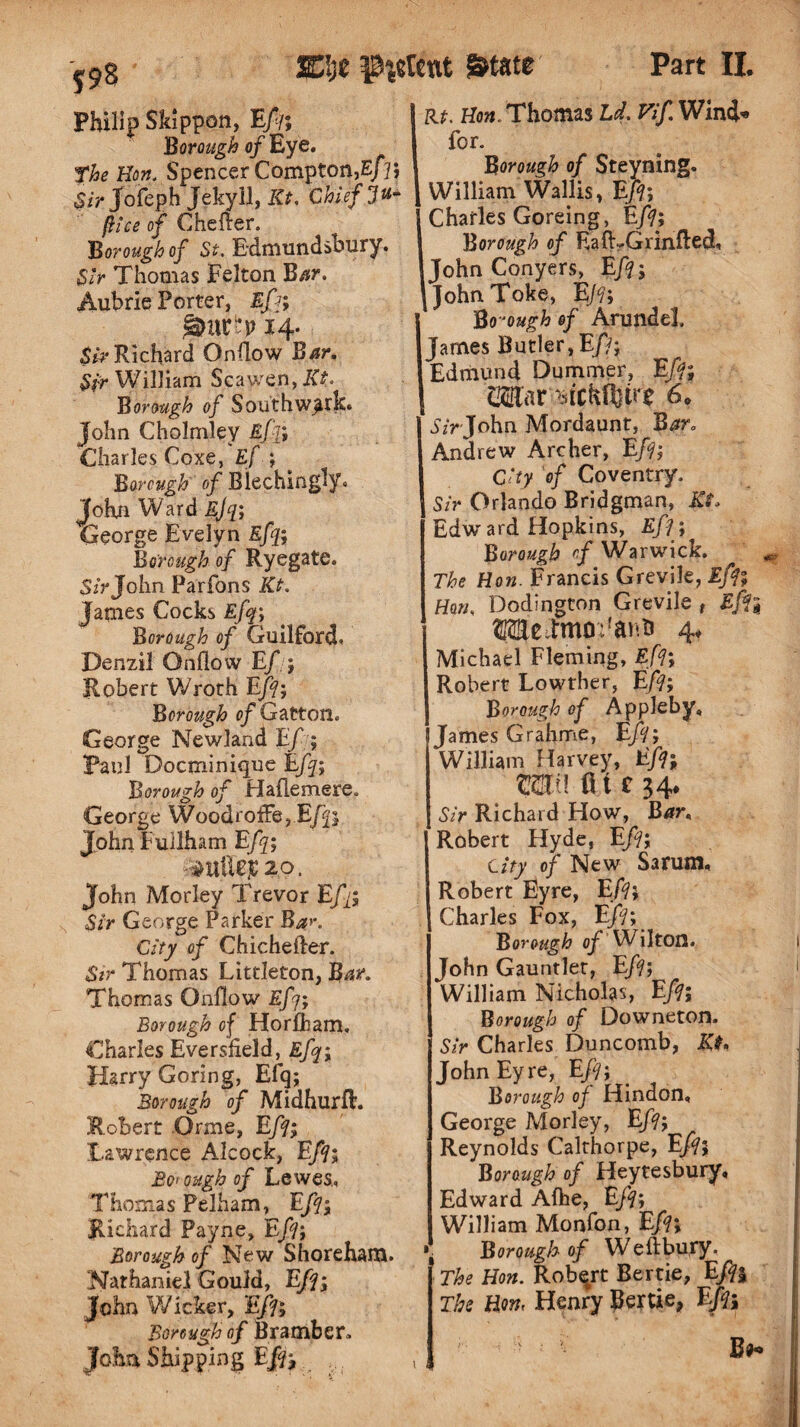 598 The Pꝛeſent State Part II.
Philip Skippon, Eſq;
Borough of Eye.
The Hon. Spencer Compton, Eſq;
Sir Joſeph Jekyll, Kt. Chief Ju-
ſtice of Cheſter.
Borough of St. Edmundsbury.
Sir Thomas Felton Bar.
Aubrie Porter, Eſq;
Surry 14.
Sir Richard Onſlow Bar.
Sir William Scawen, Kt.
Borough of Southwark.
John Cholmley Eſq;
Charles Coxe, Eſ ;
Borough of Blechingly.
John Ward Eſq;
George Evelyn Eſq;
Borough of Ryegate.
Sir John Parſons Kt.
James Cocks Eſq;
Borough of Guilford.
Denzil Onſlow Eſ ;
Robert Wroth Eſq;
Borough of Gatton.
George Newland Eſ ;
Paul Docminique Eſq;
Borough of Haſlemere.
George Woodroffe, Eſq;
John Fullham Eſq;
Suſſex 20.
John Morley Trevor Eſq;
Sir George Parker Bar.
City of Chicheſter.
Sir Thomas Littleton, Bar.
Thomas Onſlow Eſq;
Borough of Horſham.
Charles Eversfield, Eſq;
Harry Goring, Eſq;
Borough of Midhurſt.
Robert Orme, Eſq;
Lawrence Alcock, Eſq;
Borough of Lewes.
Thomas Pelham, Eſq;
Richard Payne, Eſq;
Borough of New Shoreham.
Nathaniel Gould, Eſq;
John Wicker, Eſq;
Borough of Bramber.
John Shipping Eſq;
Rt. Hon. Thomas Ld. Viſ. Wind-
ſor.
Borough of Steyning.
William Wallis, Eſq;
Charles Goreing, Eſq;
Borough of Eaſt-Grinſted.
John Conyers, Eſq;
John Toke, Eſq;
Borough of Arundel.
James Butler, Eſq;
Edmund Dummer, Eſq;
Warwickſhire 6.
Sir John Mordaunt, Bar.
Andrew Archer, Eſq;
City of Coventry.
Sir Orlando Bridgman, Kt.
Edward Hopkins, Eſq;
Borough of Warwick.
The Hon. Francis Grevile, Eſq;
Hon. Dodington Grevile, Eſq;
Weſtmorland 4.
Michael Fleming, Eſq;
Robert Lowther, Eſq;
Borough of Appleby.
James Grahme, Eſq;
William Harvey, Eſq;
Wiltſhire 34.
Sir Richard How, Bar.
Robert Hyde, Eſq;
City of New Sarum.
Robert Eyre, Eſq;
Charles Fox, Eſq;
Borough of Wilton.
John Gauntlet, Eſq;
William Nicholas, Eſq;
Borough of Downeton.
Sir Charles Duncomb, Kt.
John Eyre, Eſq;
Borough of Hindon.
George Morley, Eſq;
Reynolds Calthorpe, Eſq;
Borough of Heytesbury.
Edward Aſhe, Eſq;
William Monſon, Eſq;
Borough of Weſtbury.
The Hon. Robert Bertie, Eſq;
The Hon. Henry Bertie, Eſq;
Bo-